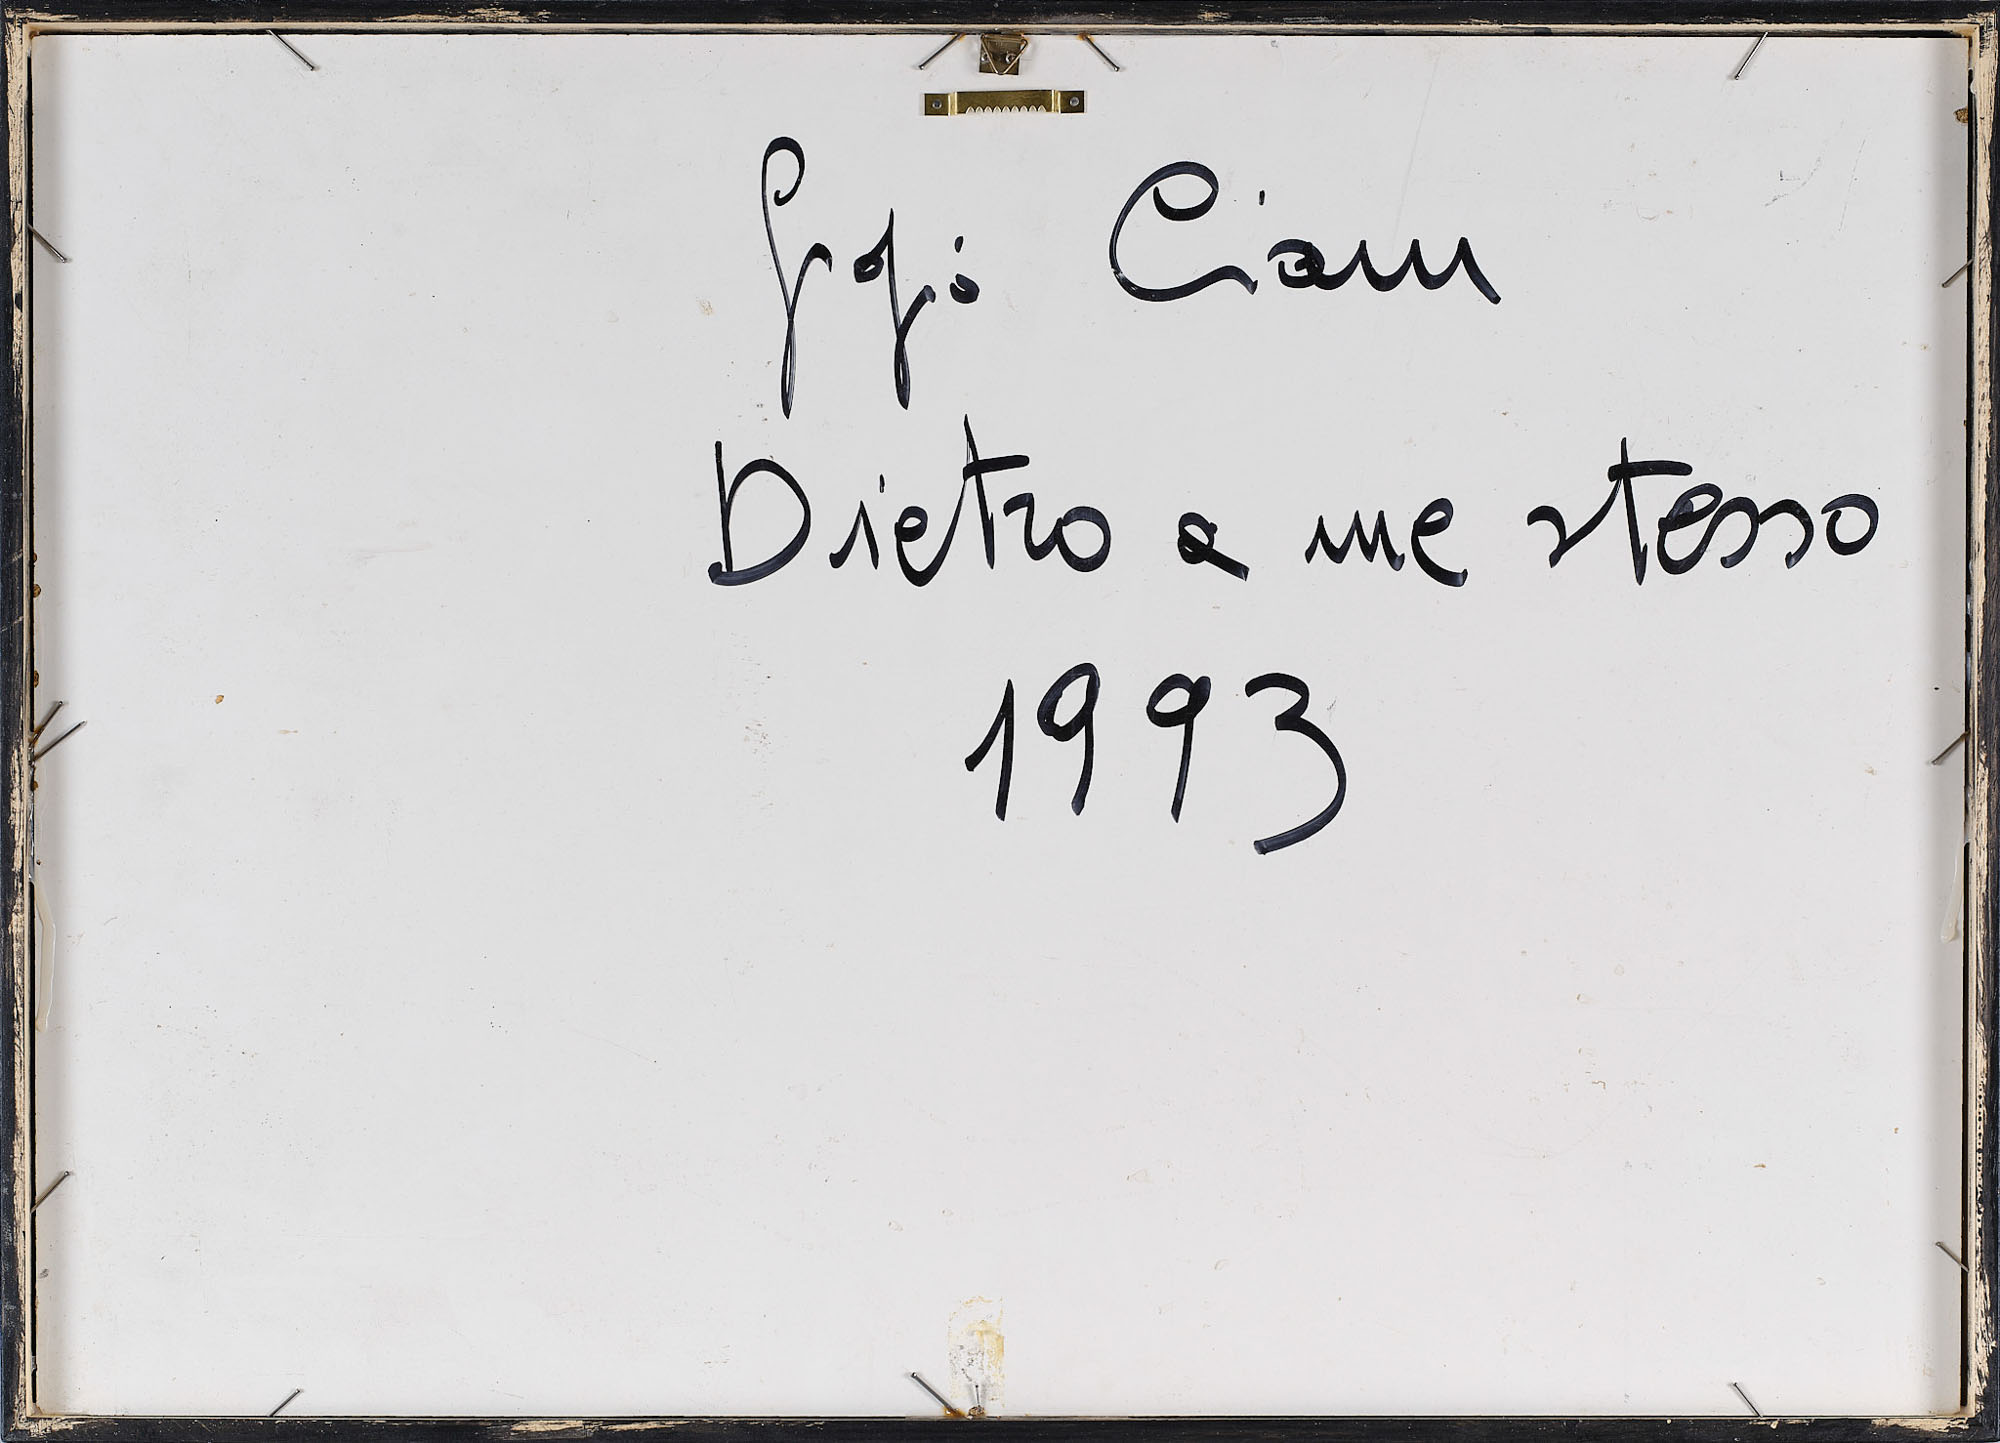 Gigi Cian
Dietro a me stesso
1993